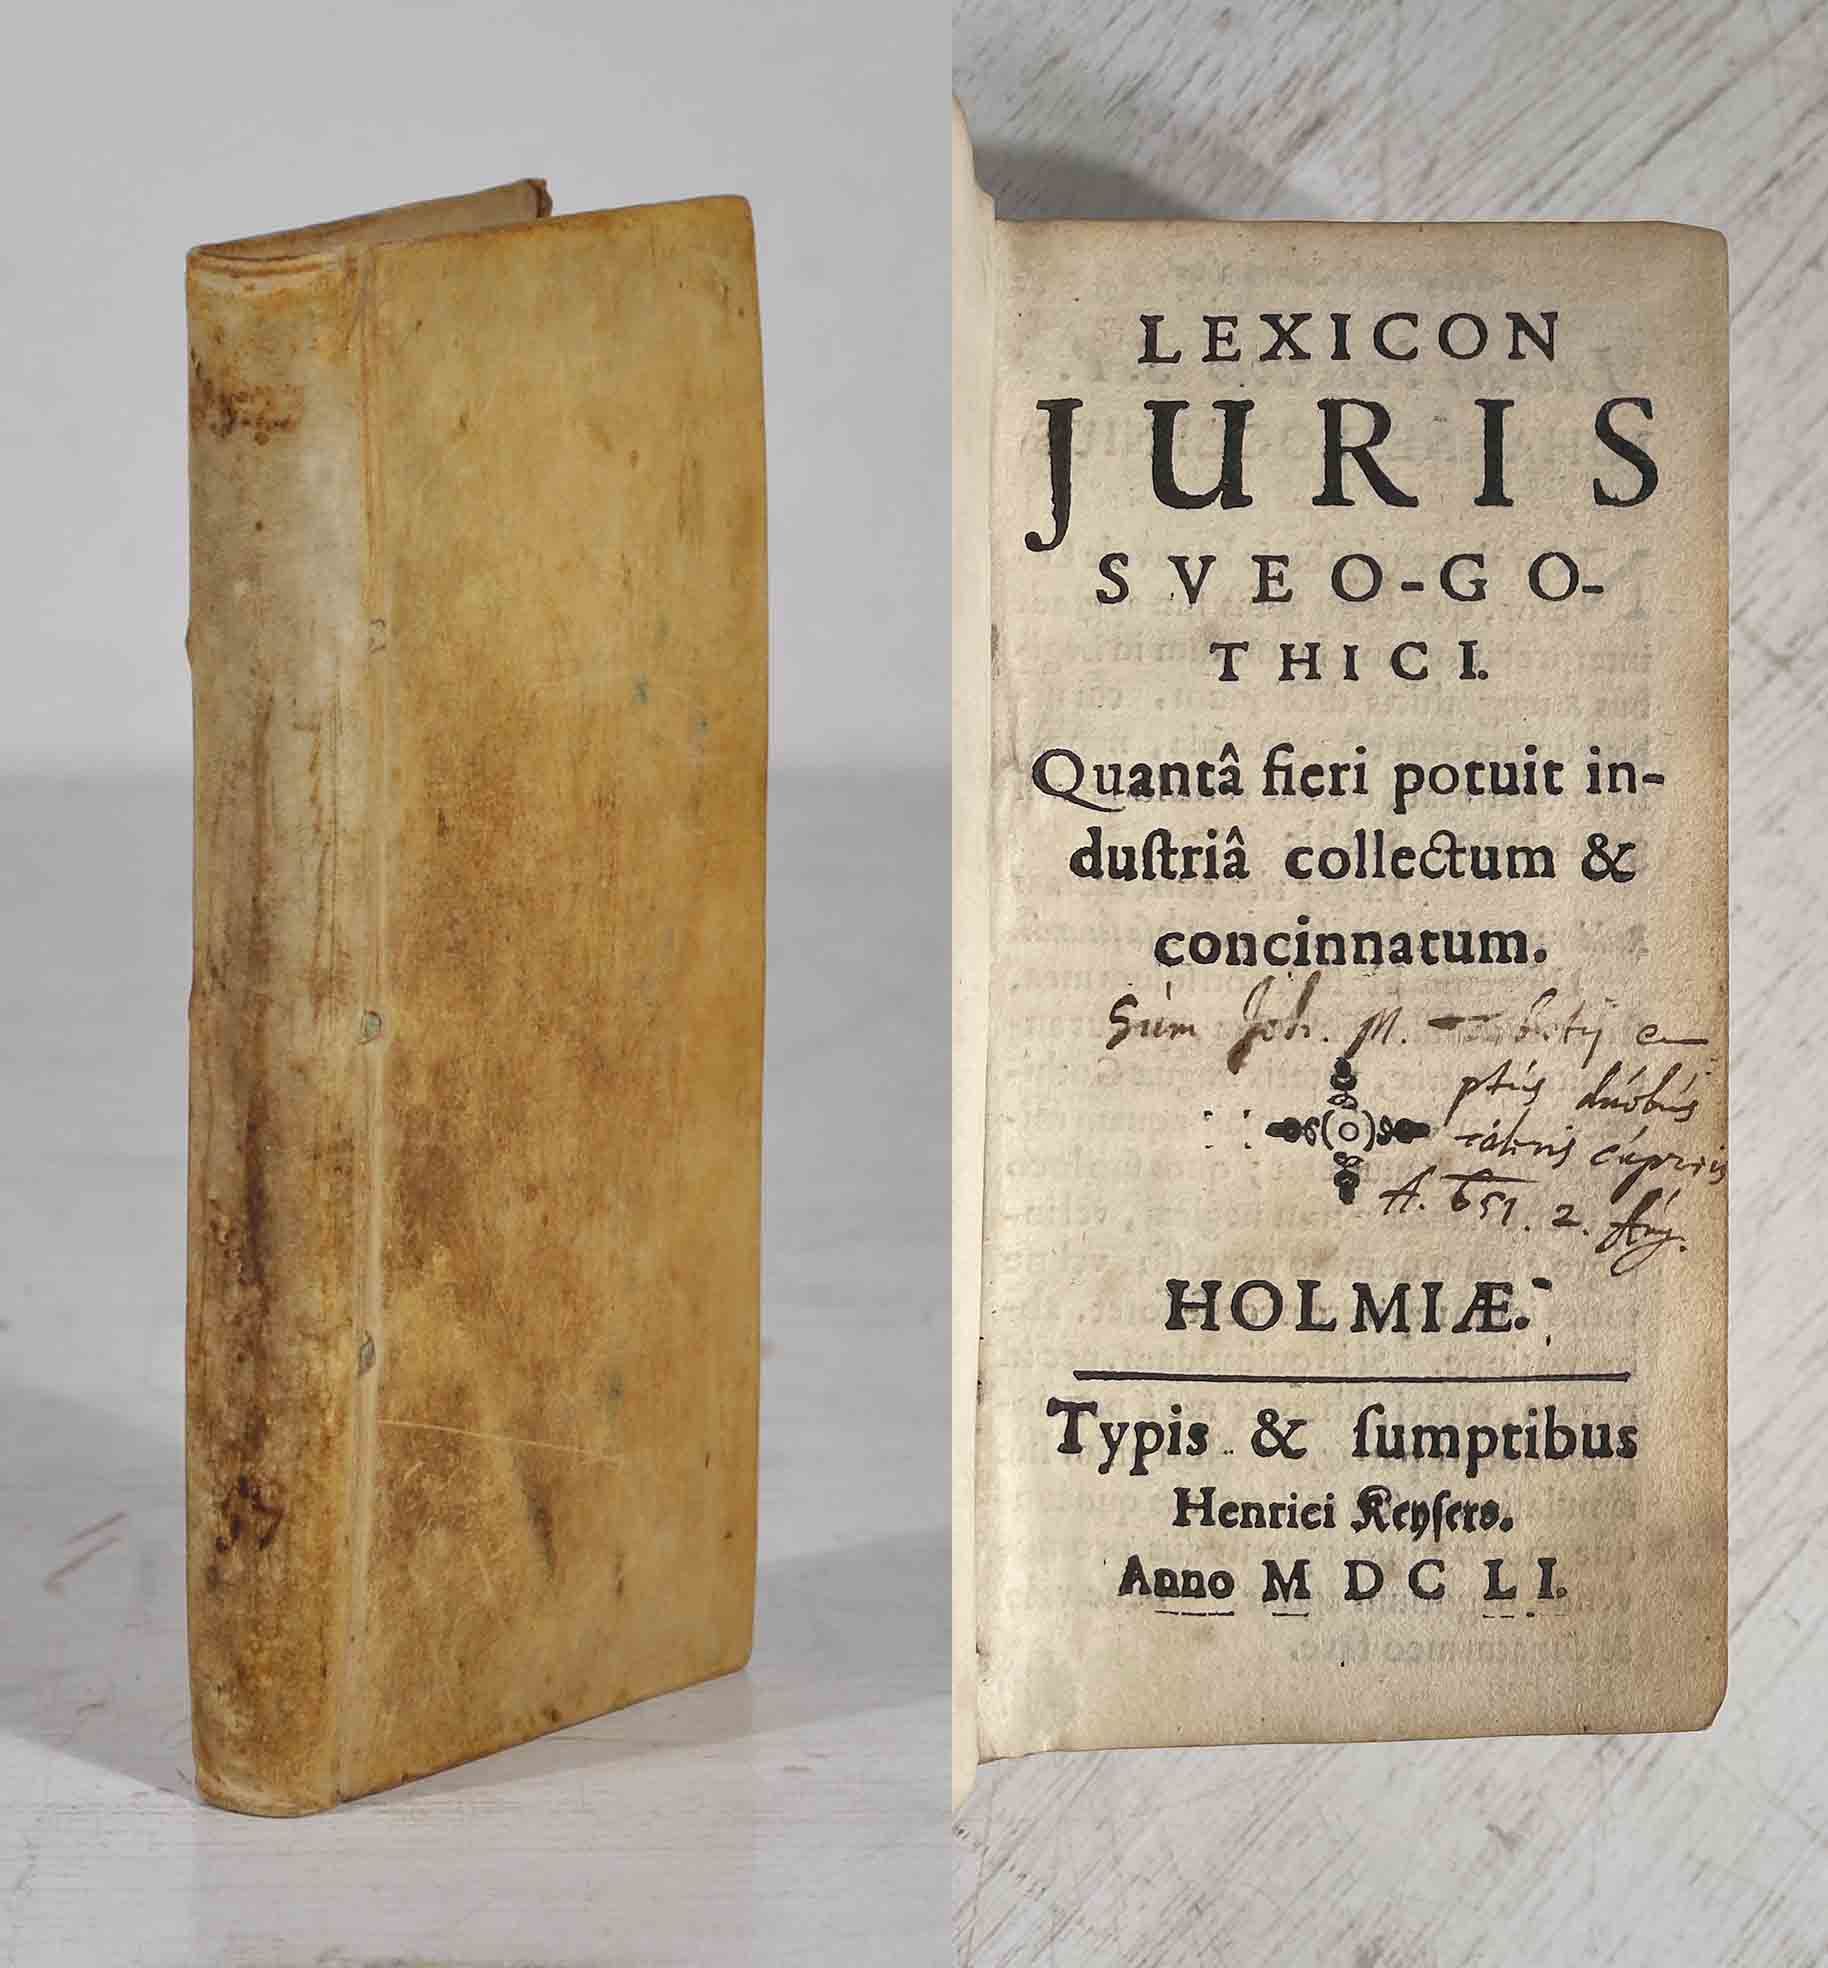 LEXICON
JURIS
SVEO-GO-
THICI.
Quantâ fieri potuit in-
duſtriâ collectum &
concinnatum.
Sum Joh. M. em
ptus duobus
cupreis
A. 651. 2. Aug.
HOLMIÆ.
Typis & ſumptibus
Henrici Keyſers.
Anno MDCLI.